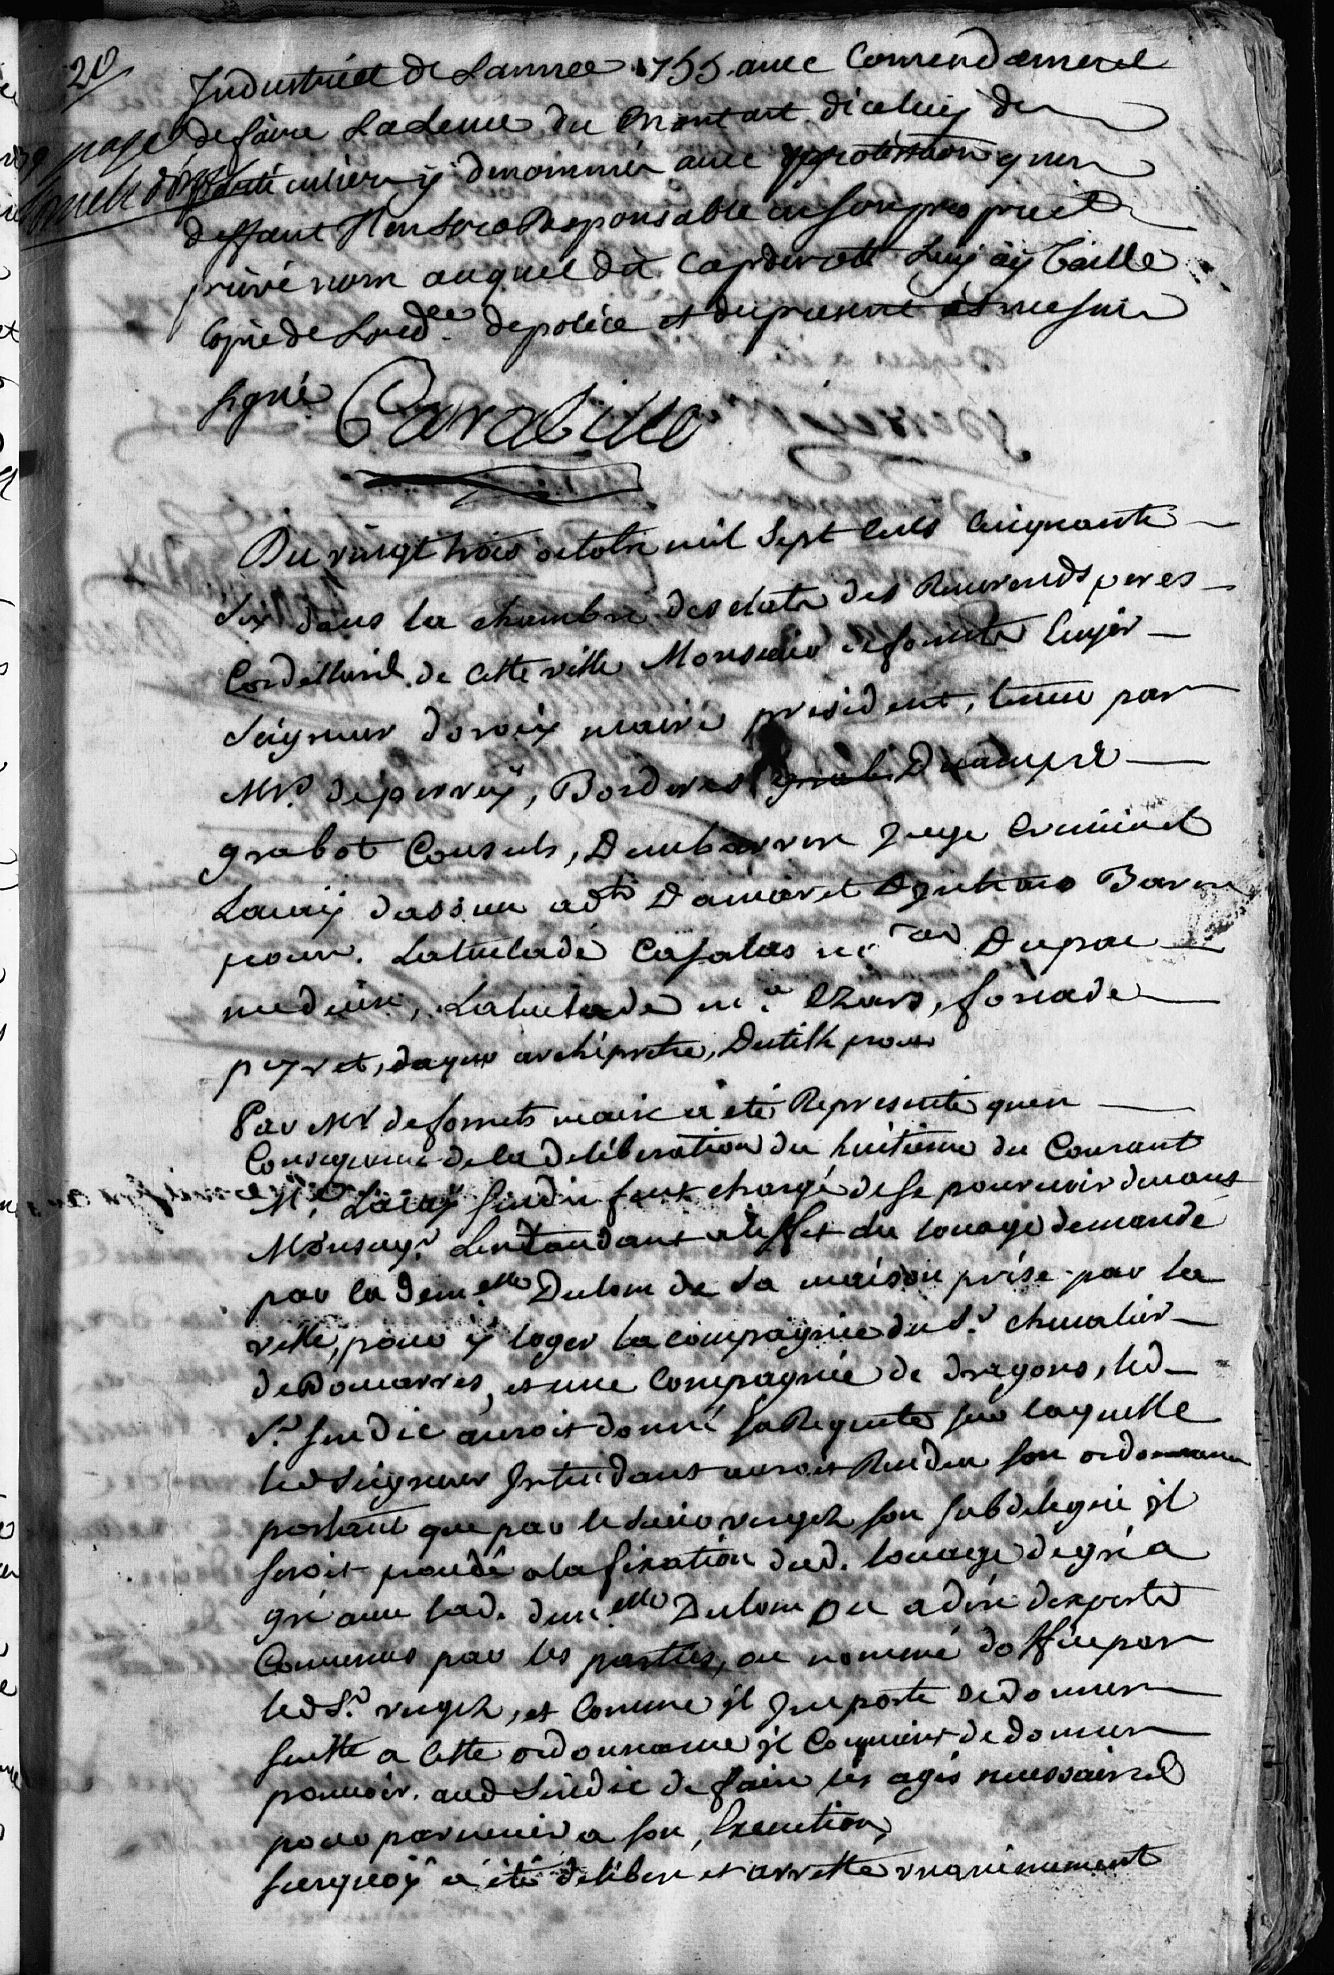 20
Industriel de Lannee 1755 avec Comendement
de faire La Levee du montant dicelluy de
particuliers y denommés avec protestation quen
deffaut Il en sera Responsable en son propre et
privé nom auquel dit Capderoth Luy ay Baillé
Copie de Lord.ce de police et du present et me suis
signé
Du vingt trois octobre mil Sept Cens Cinquante
six dans la chambre des etats des Reverends peres
Cordelliers de cette ville Monsieur defornets Ecuyer
Seigneur doroix maire president, tenue par
Mrs. depperrey, Borderes Ducampet
grabot Consuls, Dembarrere Juge Criminel
Lacay dassieu adts Damoret Barere
procur. Latulade Casalas Dupac
medecin, Latulade forcade
peyret, dayex archiprette, Dutilh
Par Mr defornets maire a été Representé quen
Consequence de la deliberation du huitieme du Courant
Mr. Lacay sindic feut chargé de se pourvoir devant
Monseigr. Lintandant a leffet du louage demandé
par la demelle Dulom de la maison prise par la
ville, pour y loger la compagnie du Sr. chevalier
de Domarres, et une Compagnie de dragons, led
Sr. sindic auroit donné sa Requette sur laquelle
led seigneur Intendant auroit Rendeu son ordonnance
portant que par le sieur vergez son subdelegué il
seroit procedé a la fixation dud. louage de gré a
gré avec lad. demelle Dulom ou a dire dexperts
Convenus par les parties, ou nommé doffice par
led Sr. vergez, et Comme il Importe de donner
suitte a Cette ordonnance il Convient de donner
pouvoir aud Sindic de faire les actes necessaires
pour parvenir a son Execution,
surquoy a été deliberé et arretté unanimement